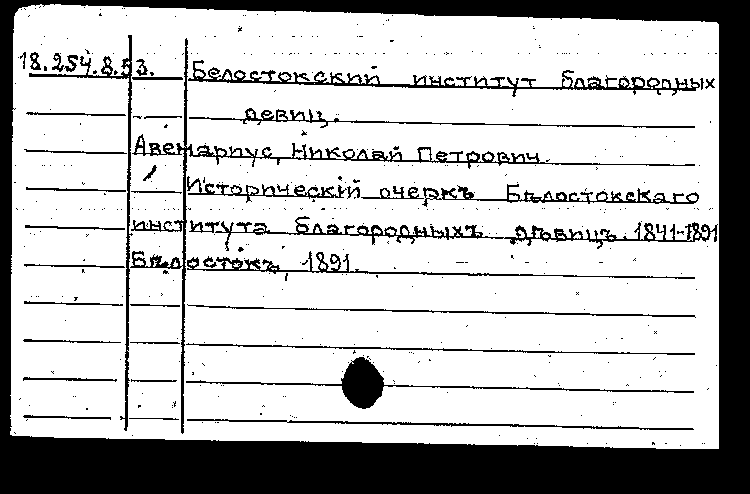 18.254.8.53. Белостокский институт благородных
девиц.
Авенариус, Николай Петрович.
Историческій очеркъ Бѣлостокскаго
института благородныхъ дѣвицъ. 1841-1891
Бѣлостокъ, 1891.